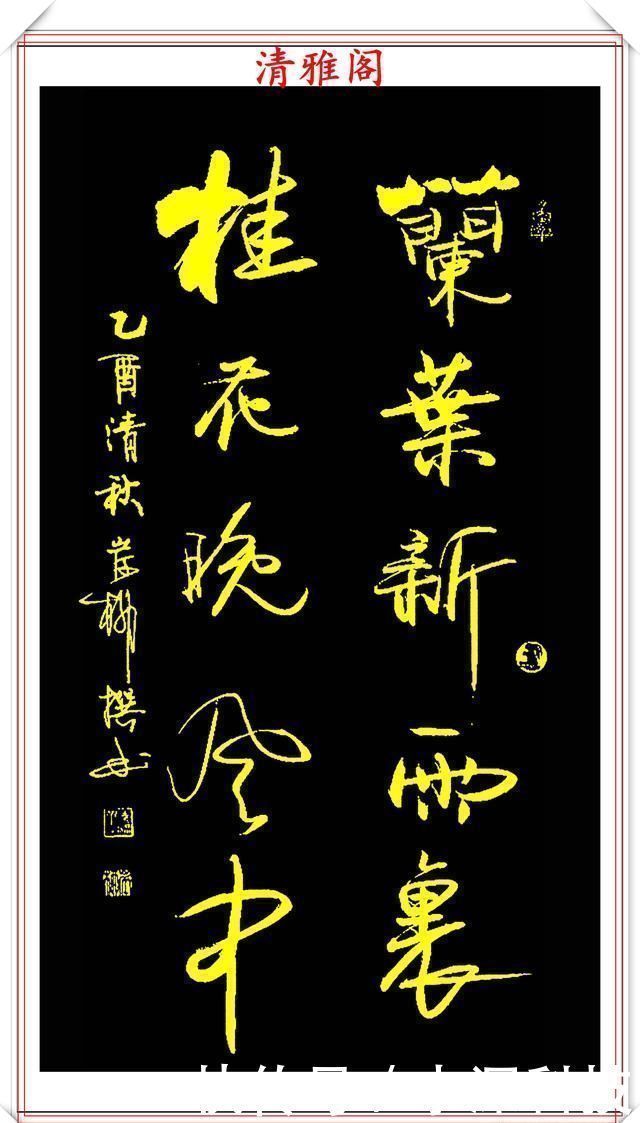 清雅阁
蘭葉新雨裏
桂花晚风中
乙酉清秋
撰书